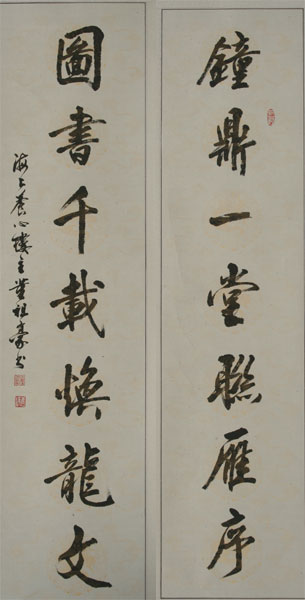 鐘鼎一堂聯雁序
圖書千載煥龍文
海上養心樓主董祖豪书